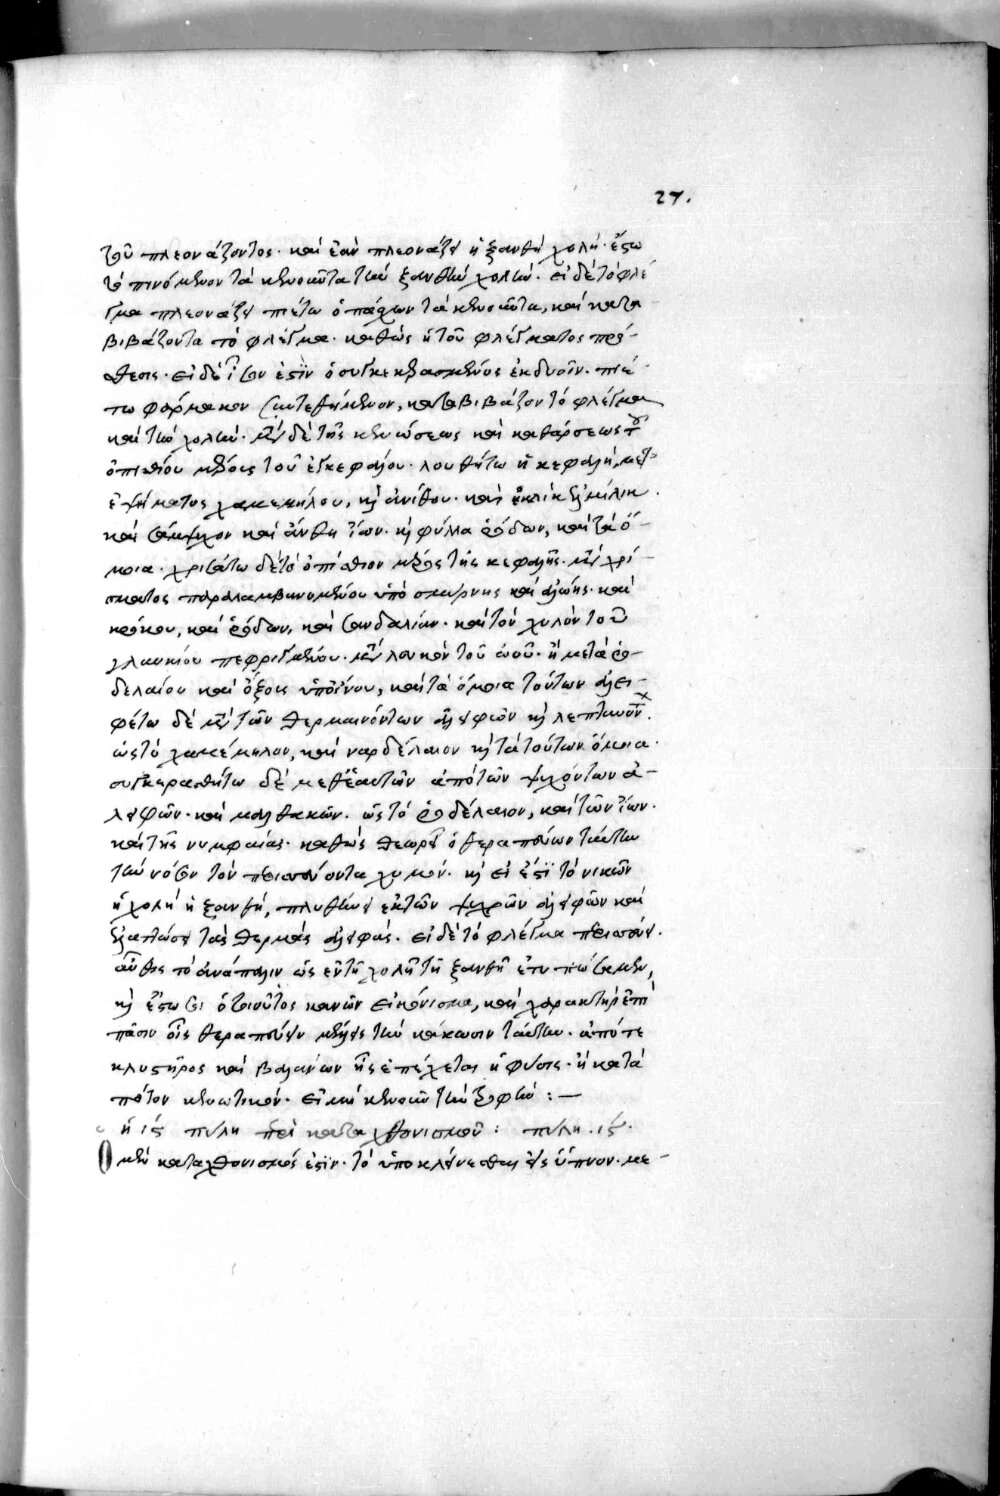 27.
τοῦ πλεονάζοντος· καὶ ἐὰν πλεονάζῃ ἡ ξανθὴ χολή· ἔστω
τὸ πινόμενον τὰ κενοῦντα τὴν ξανθὴν χολήν· εἰ δὲ τὸ φλέ
γμα πλεονάζει πιέτω ὁ πάσχων τὰ κενοῦντα, καὶ κατα
βιβάζοντα τὸ φλέγμα· καθὼς ἡ τοῦ φλέγματος πρό-
θεσις· εἰ δέ ἐστιν ὁ συγκεκερασμένος ἐκ δυοῖν· πιέ
τω φάρμακον συντεθειμένον, καταβιβάζον τὸ φλέγμα
καὶ τὴν χολήν· μετὰ δὲ τῆς κενώσεως καὶ καθάρσεως τοῦ
ὀπισθίου μέρους τοῦ ἐγκεφάλου· λουθήτω ἡ κεφαλὴ, μετὰ
ἑψήματος χαμεμήλου, καὶ ἀνίθου· καὶ
καὶ σάμψυχον καὶ ἄνθη ἴων· καὶ φύλλα ῥόδων, καὶ τὰ ὅ-
μοια· χρισάτω δὲ τὸ ὀπίσθιον μέρος τῆς κεφαλῆς· μετὰ χρί
σματος παραλαμβανομένου ὑπὸ σμύρνης καὶ ἀλώης· καὶ
κρόκου, καὶ ῥόδων, καὶ σανδαλίων· καὶ τὸν χυλὸν τοῦ
γλαυκίου πεφριγμένου· μετὰ λευκὸν τοῦ ὠοῦ· ἢ μετὰ ῥο
δελαίου καὶ ὄξους οἴνου, καὶ τὰ ὅμοια τούτων ἀλει-
φέτω δὲ μετὰ τῶν θερμαινόντων ἀλειφῶν καὶ
ὡς τὸ χαμέμηλον, καὶ ναρδέλαιον καὶ τὰ τούτων ὅμοια·
συγκεραθήτω δὲ μεθ' ἑαυτῶν ἀπὸ τῶν ψυχόντων ἀ-
λειφῶν· καὶ μαλθακῶν· ὡς τὸ ῥοδέλαιον, καὶ τῶν ἴων·
καὶ τῆς νυμφαίας· καθὼς θεωρεῖ ὁ θεραπεύων ταύτην
τὴν νόσον τὸν περισσεύοντα χυμόν· καὶ εἰ ἔστι τὸ νικῶν
ἡ χολὴ ἡ ξανθή, πληθύνει ἐκ τῶν ψυχρῶν ἀλειφῶν καὶ
ἐλαττώσει τὰς θερμὰς ἀλειφάς· εἰ δὲ τὸ φλέγμα περισσεύει·
αὖθις τὸ ἀνάπαλιν ὡς ἐν τῇ χολῇ τῇ ξανθῇ ἐτυπώσαμεν,
καὶ ἔστω σοι ὁ τοιοῦτος κανὼν εἰκόνισμα, καὶ χαρακτὴρ ἐπὶ
πᾶσιν οἷς θεραπεύειν μέλλεις τὴν κάκωσιν ταύτην· ἀπό τε
κλυστῆρος καὶ βαλάνων ἧς ἐπέχεται ἡ φύσις· ἢ κατὰ
πότον κενωτικόν· εἰ μὴ κενοῖ τὴν τροφήν :—
ἡ ις πύλη περὶ καταχθονισμοῦ : πύλη ις·
Ὁ μὲν καταχθονισμός ἐστιν· τὸ ὑποκλίνεσθαι εἰς ὕπνον· με-